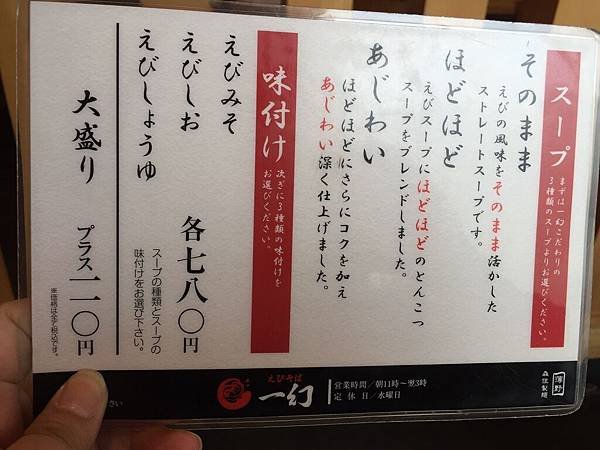 スープ
まずは一幻こだわりの
3種類のスープよりお選びください。
そのまま
えびの風味をそのまま活かした
ストレートスープです。
ほどほど
えびスープにほどほどのとんこつ
スープをブレンドしました。
あじわい
ほどほどにさらにコクを加え
あじわい深く仕上げました。
味付け
次ぎに3種類の味付けを
お選びください。
えびみそ
えびしお
えびしょうゆ
各七八〇円
スープの種類とスープの
味付けをお選び下さい。
大盛り プラス一一〇円
※価格は全て税込です。
えびそば
一幻
営業時間／朝11時～翌3時
定休日／水曜日
森住製麺
さい